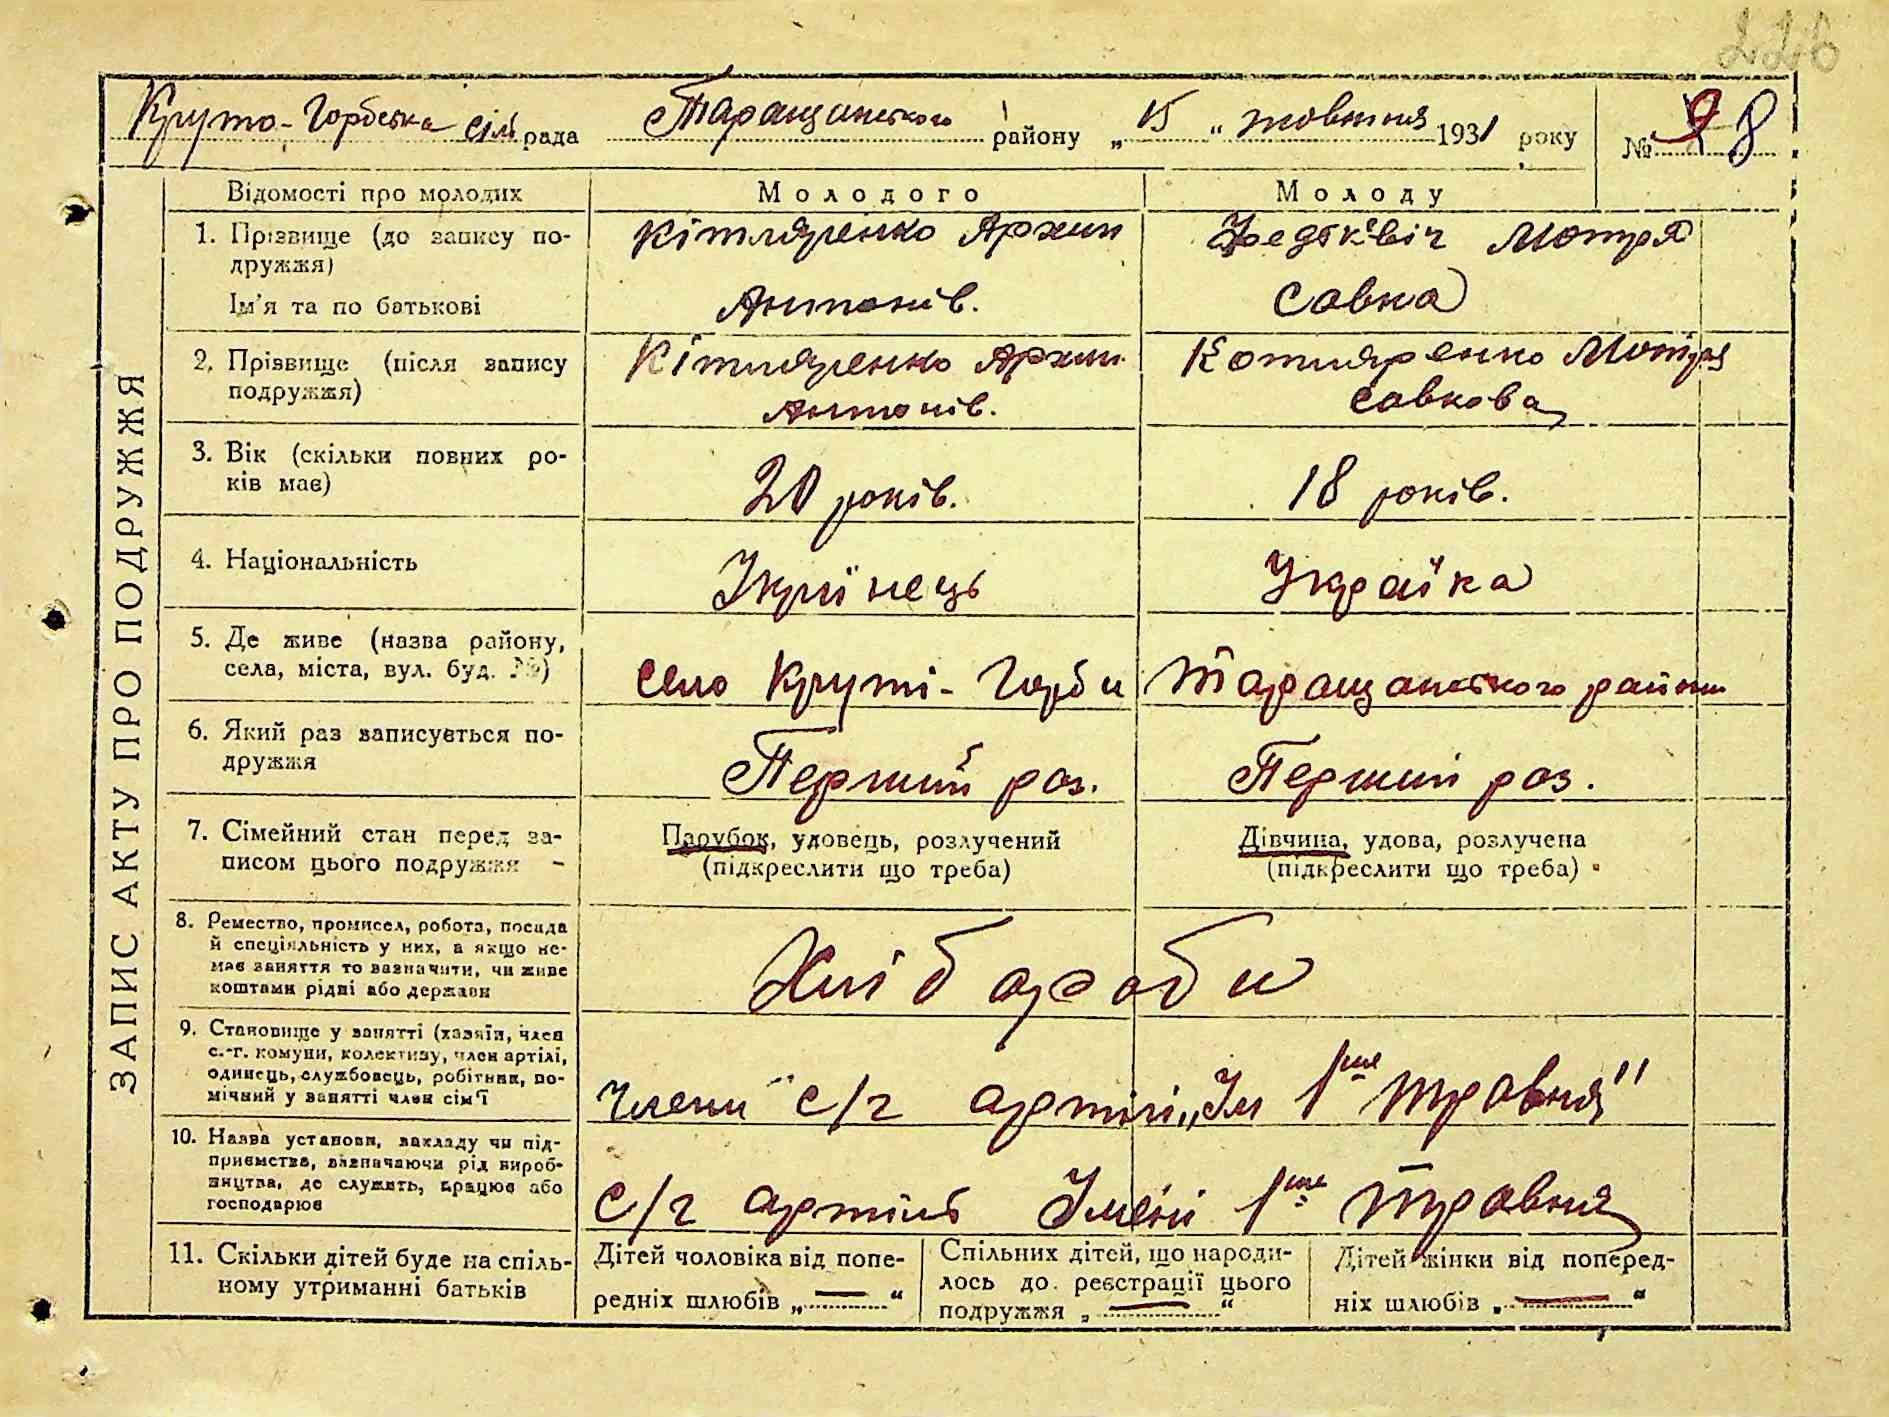 226
Круто-Горбська сіль рада Таращанського району „ 15 “ жовтня 1931 року № 98
ЗАПИС АКТУ ПРО ПОДРУЖЖЯ
Відомості про молодих Молодого Молоду
1. Прізвище (до запису по-
дружжя)
Ім'я та по батькові
Кітляренко Архип
Антонів.
Федькевіч Мотря
Савка
2. Прізвище (після запису
подружжя)
Кітляренко Архип
Антонів.
Котляренко Мотря
Савкова
3. Вік (скільки повних ро-
ків має)
20 років.
18 років.
4. Національність
Украінець
Украінка
5. Де живе (назва району,
села, міста, вул. буд. №)
село Круті-Горби Таращанського району
6. Який раз записується по-
дружжя
Перший раз.
Перший раз.
7. Сімейний стан перед за-
писом цього подружжя
Парубок, удовець, розлучений
(підкреслити що треба)
Дівчина, удова, розлучена
(підкреслити що треба)
8. Ремество, промисел, робота, посада
й спеціяльність у них, а якщо не-
має заняття то вазначити, чи живе
коштами рідні або держави
Хлібароби
9. Становище у занятті (хазяїн, член
с.-г. комуни, колективу, член артілі,
одинець, службовець, робітник, по-
мічний у занятті член сім'ї
Члени с/г артілі „Ім 1ше травня"
10. Назва установи, закладу чи під-
приємства, вазначаючи рід вироб-
ництва, де служить, працює або
господарює
с/г артіль Імені 1ше травня
11. Скільки дітей буде на спіль-
ному утриманні батьків
Дітей чоловіка від попе-
редніх шлюбів „ — “
Спільних дітей, що народи-
лось до реєстрації цього
подружжя „ — “
Дітей жінки від поперед-
ніх шлюбів „ — “